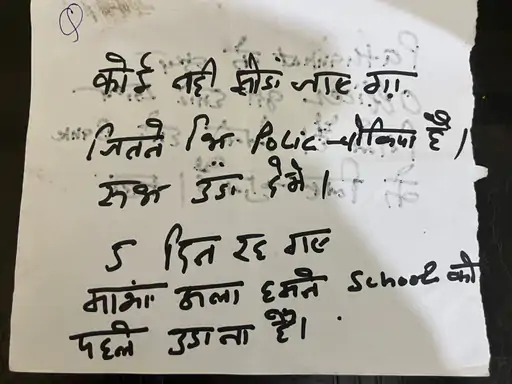 कोई नही छोडा जाए गा
जितने भि Polic चोकिया है।
सभ उडा देगे।
5 दिन रह गए
माभां वाला हमने School को
पहले उडाना है।